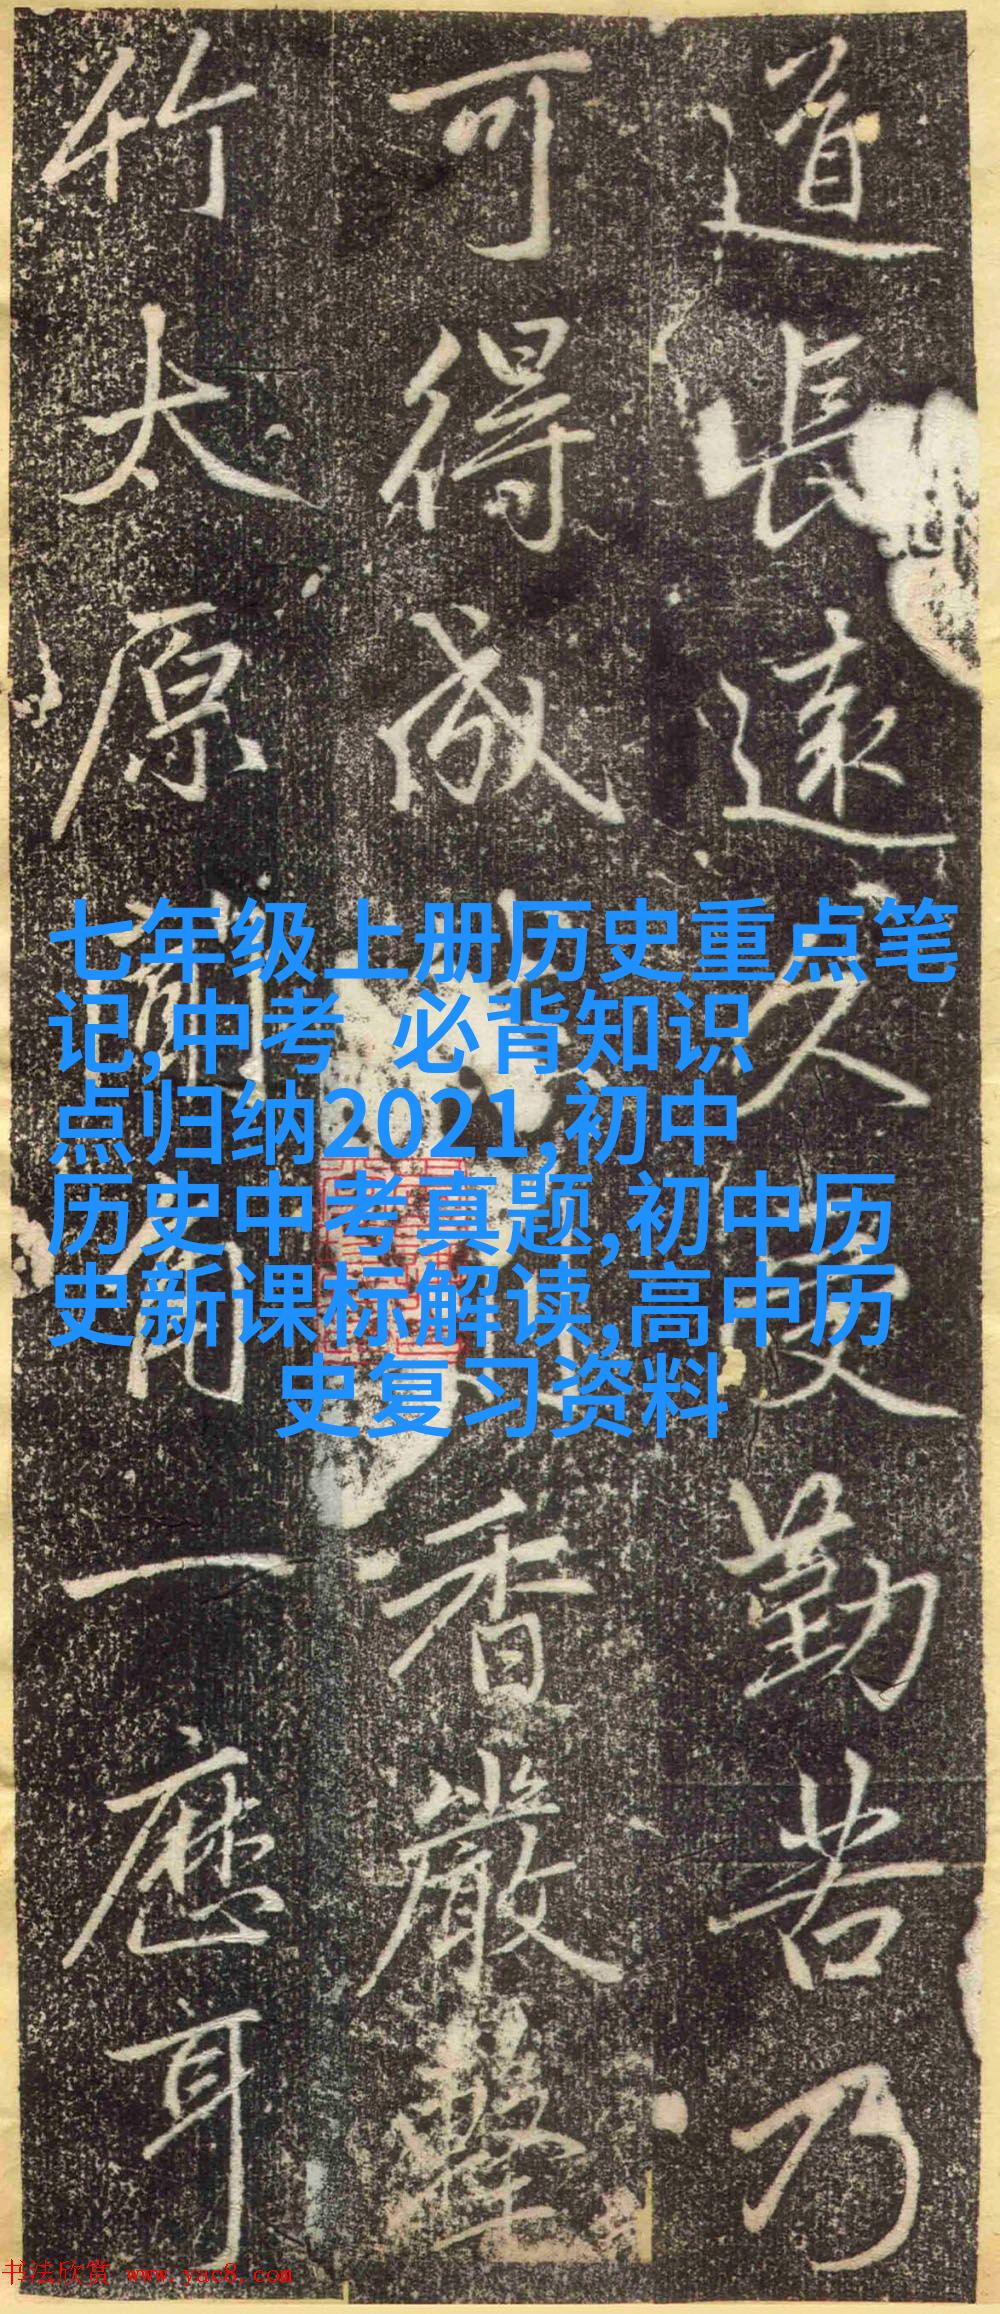 道長遠久受勤苦乃
可得成
香嚴擊
竹太原
一應耳
七年级上册历史重点笔
记,中考 必背知识
点归纳2021,初中
历史中考真题,初中历
史新课标解读,高中历
史复习资料
书法欣赏 www.yac8.com